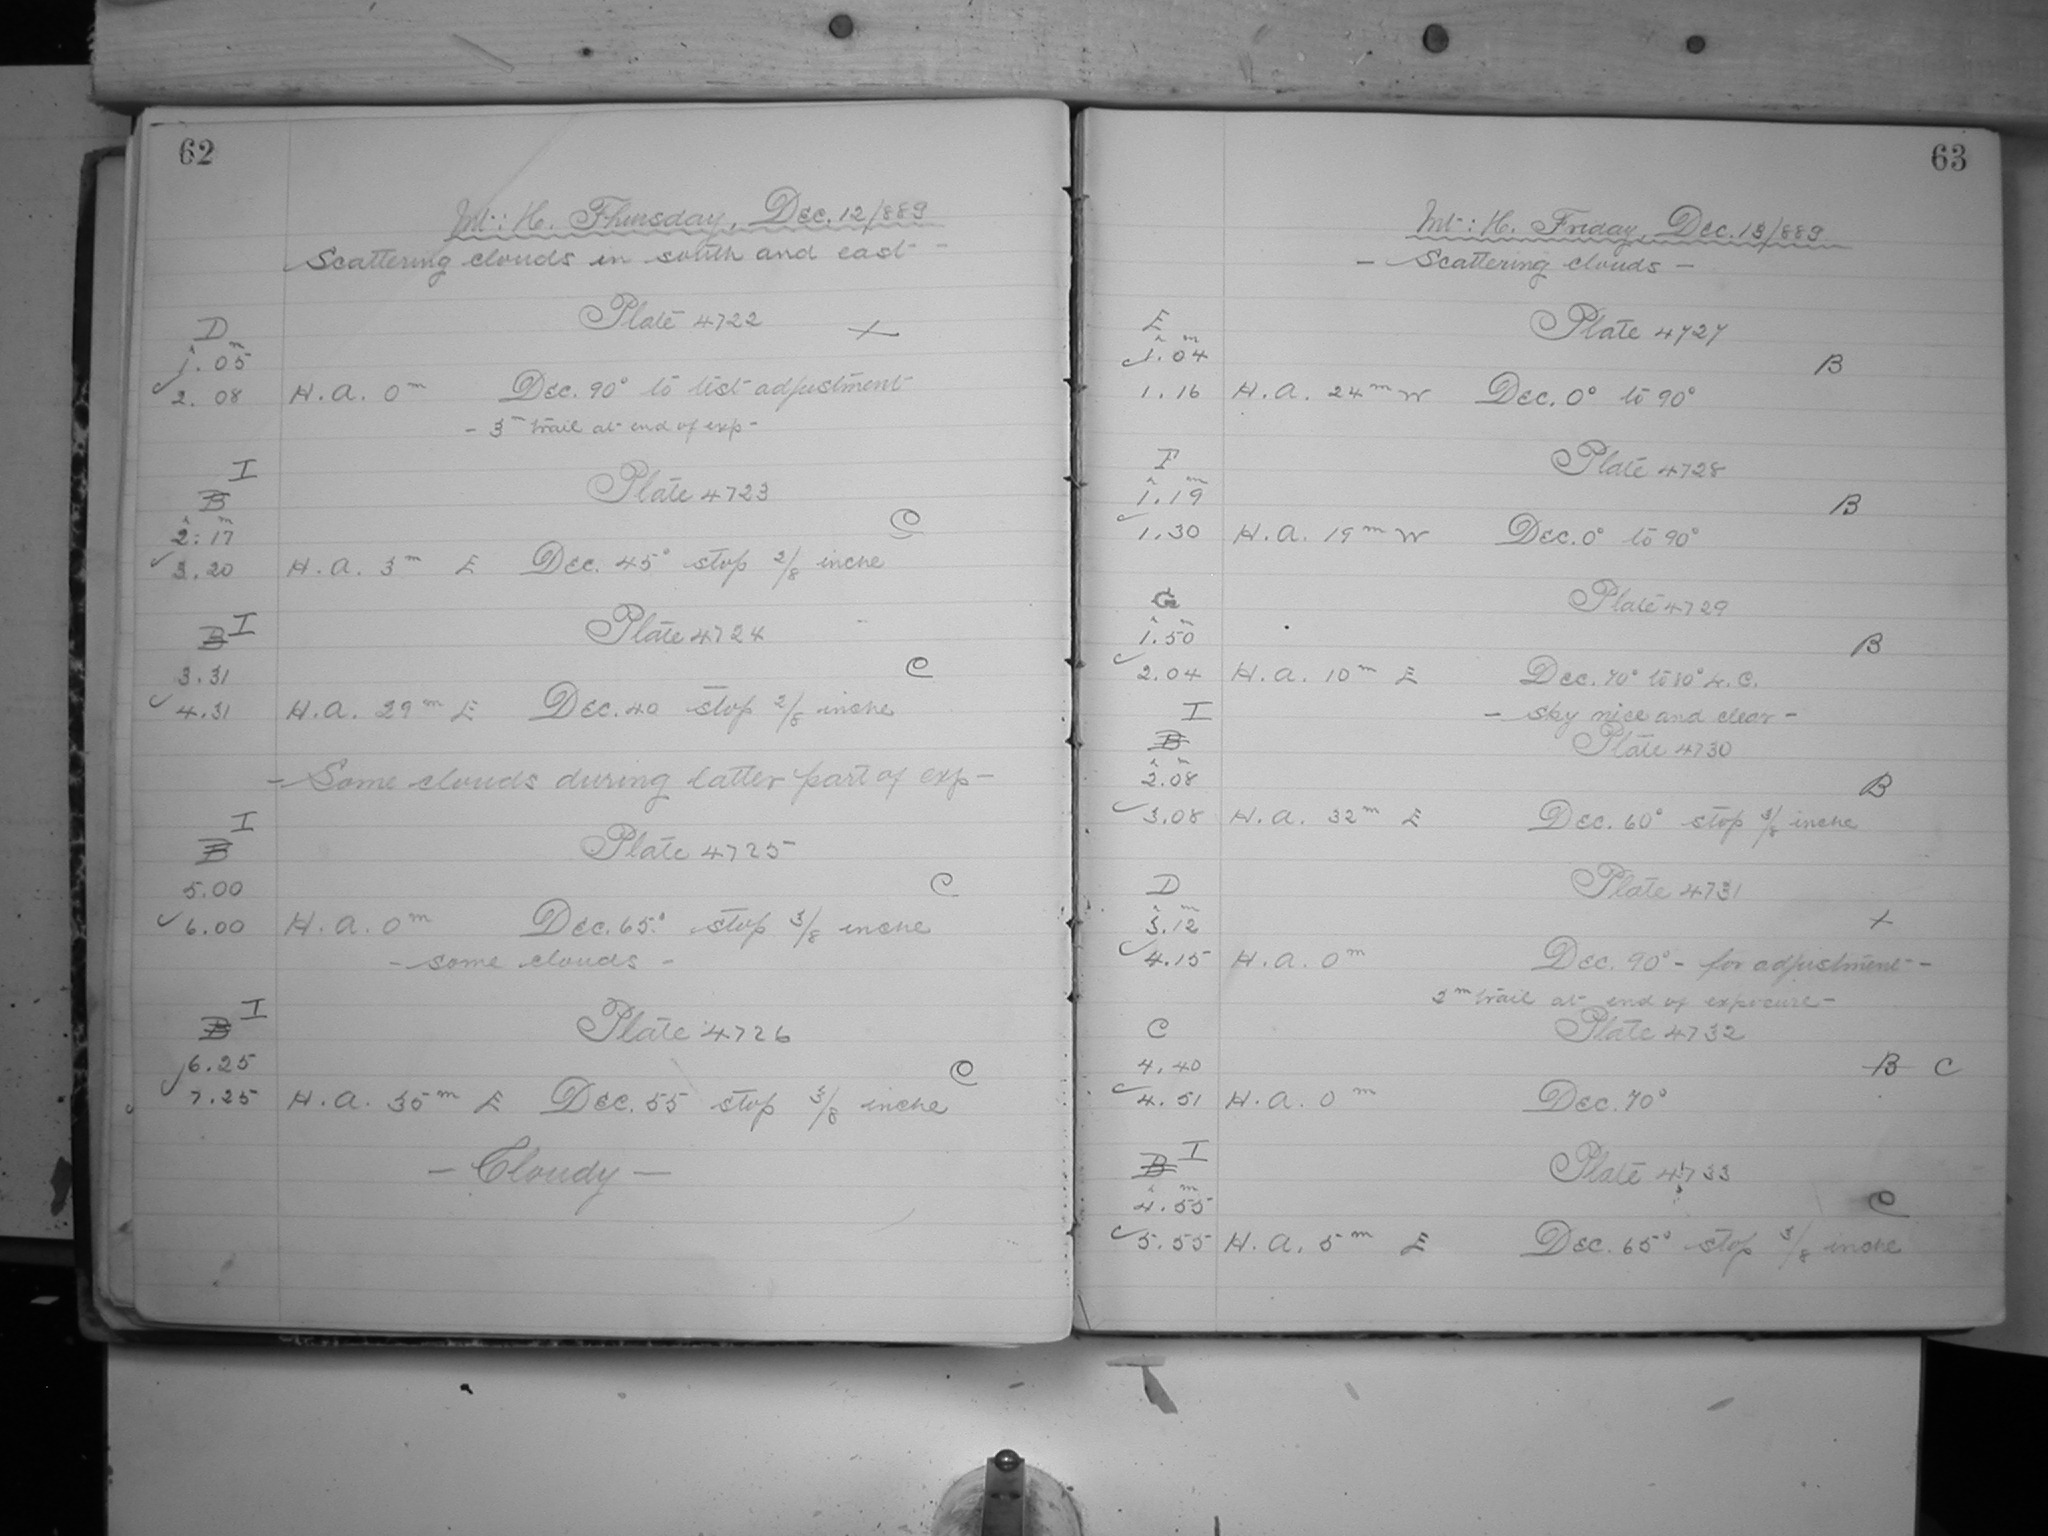 62
Mt: H. Thursday, Dec. 12/889
Scattering clouds in south and east -
D
Plate 4722
h m
1.05
2.08 H.A. 0m Dec. 90° to test adjustment
- 3m trail at end of exp -
I
B
Plate 4723
h m
2.17 C
3.20 H.A. 3m E Dec. 45° stop 2/8 inche
B I
Plate 4724
3.31 C
4.31 H.A. 29m E Dec. 40 stop 2/8 inche
- Some clouds during latter part of exp -
I
B
Plate 4725
5.00 C
6.00 H.A. 0m Dec. 65° stop 3/8 inche
- some clouds -
B I
Plate 4726
6.25 C
7.25 H.A. 35m E Dec. 55 stop 3/8 inche
- Cloudy -
63
Mt: H. Friday, Dec. 13/889
- Scattering clouds -
E
Plate 4727
h m
1.04 B
1.16 H.A. 24m W Dec. 0° to 90°
F
Plate 4728
h m
1.19 B
1.30 H.A. 19m W Dec. 0° to 90°
G
Plate 4729
h m
1.50 B
2.04 H.A. 10m E Dec. 70° to 80° L.C.
I - sky nice and clear -
B
Plate 4730
h m
2.08 B
3.08 H.A. 32m E Dec. 60° stop 3/8 inche
D
Plate 4731
h m
3.12
4.15 H.A. 0m Dec. 90° - for adjustment -
2m trail at end of exposure -
C
Plate 4732
4.40 B C
4.51 H.A. 0m Dec. 70°
B I
Plate 4733
h m
4.55 C
5.55 H.A. 5m E Dec. 65° stop 3/8 inche